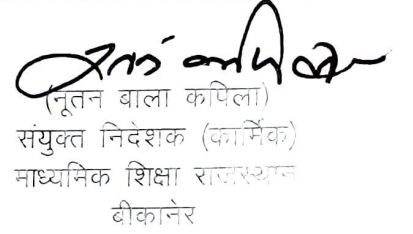 (नूतन बाला कपिला)
संयुक्त निदेशक (कार्मिक)
माध्यमिक शिक्षा राजस्थान
बीकानेर